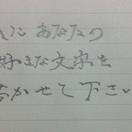 にあなたの
好きな文字を
書かせて下さい